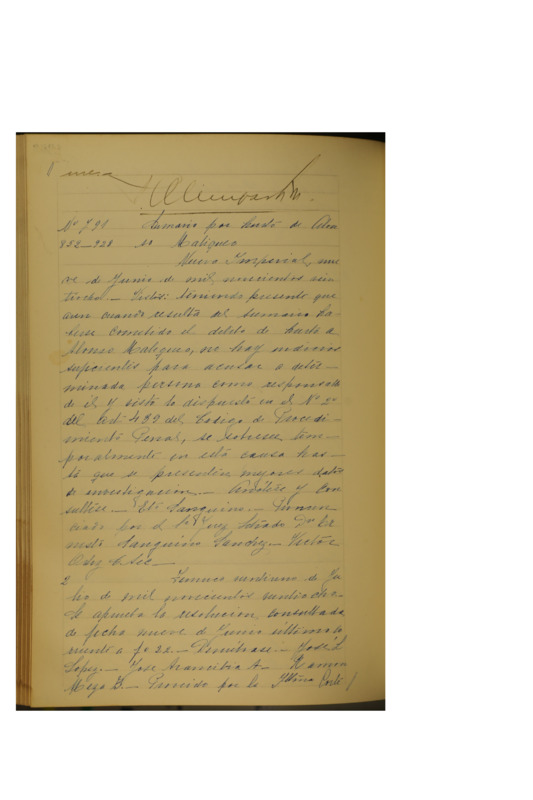 Nº 791 Sumario por hurto de Alon
852-928 so Maliqueo
Nueva Imperial, nue
ve de Junio de mil novecientos vein
tiocho.- Vistos: teniendo presente que
aun cuando resulta del sumario ha-
berse cometido el delito de hurto a
Alonso Maliqueo, no hay indicios
suficientes para acusar a deter-
minada persona como responsable
de él y visto lo dispuesto en el Nº 2º
del art. 439 del Codigo de Procedi-
miento Penal, se sobresee tem-
poralmente en esta causa has-
ta que se presenten mejores datos
de investigacion.- Anótese y con
súltese.- E. Sanguino.- Pronun
ciado por el juez letrado Don Er
nesto Sanguino Sanchez.- Victor
Ordoz C. Sec.-
2 Temuco veintiuno de Ju
lio de mil novecientos veintiocho.-
Se aprueba la resolucion consultada
de fecha nueve de Junio ultimo co
rriente a fs 22.- Devuélvase.- José L.
Lopez.- Jose Arancibia A.- Ramon
Mega B.- Proveido por la Iltma Corte